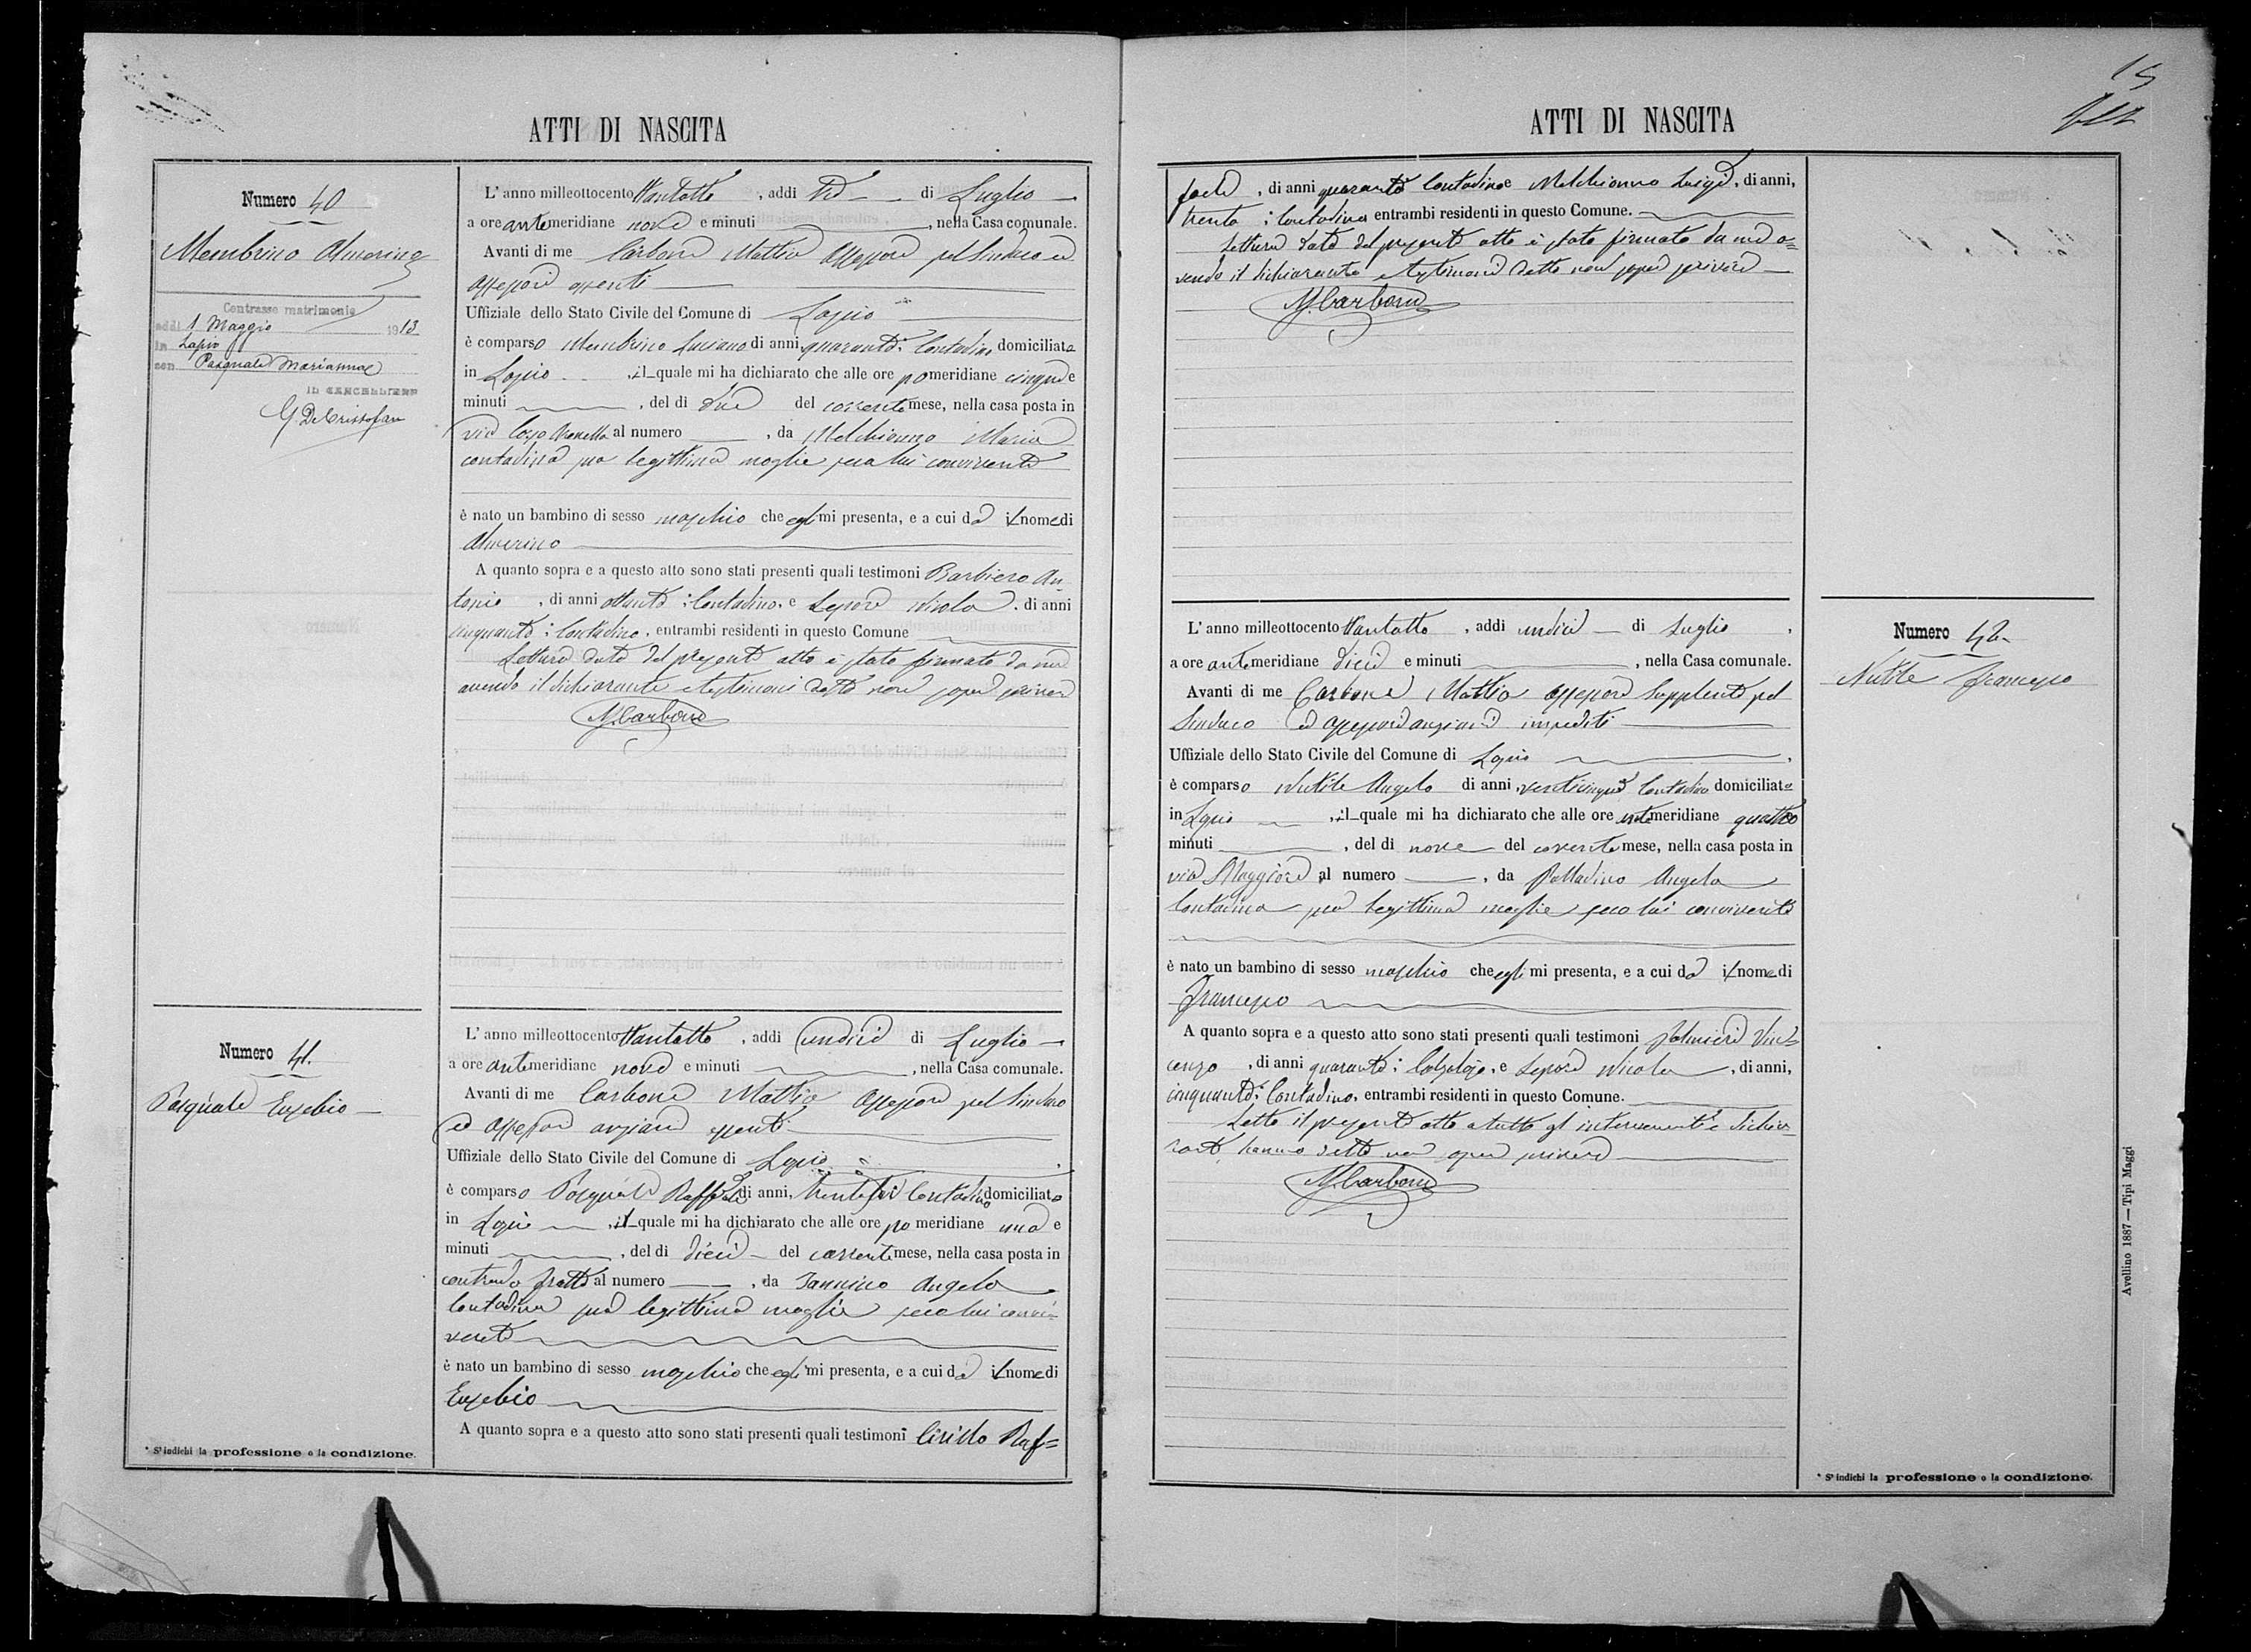 ATTI DI NASCITA
Numero 40
Membrino Almerino
Contrasse matrimonio
addì 1 Maggio 1913
in Lapio
con Pasquale Marianna
IL CANCELLIERE
G. De Cristofaro
L'anno milleottocentottantotto, addì tre di Luglio
a ore antemeridiane nove e minuti , nella Casa comunale.
Avanti di me Carbone Mattia Assessore pel Sindaco ed
assessore assenti
Uffiziale dello Stato Civile del Comune di Lapio
è comparso Membrino Luciano di anni quaranta: Contadino domiciliato
in Lapio , il quale mi ha dichiarato che alle ore pomeridiane cinque e
minuti , del di due del corrente mese, nella casa posta in
via Corso al numero , da Melchionno Maria
contadina sua legittima moglie seco lui convivente
è nato un bambino di sesso maschio che egli mi presenta, e a cui dà il nome di
Almerino
A quanto sopra e a questo atto sono stati presenti quali testimoni Barbiero An
tonio , di anni ottanta: Contadino, e Lepore Nicola, di anni
cinquanta: Contadino, entrambi residenti in questo Comune
Lettura data del presente atto è stato firmato da me
avendo il dichiarante e testimoni detto non saper scrivere
M. Carbone
Numero 41.
Pasquale Eusebio
L'anno milleottocentottantotto, addì undici di Luglio
a ore antemeridiane nove e minuti , nella Casa comunale.
Avanti di me Carbone Mattia Assessore pel Sindaco
ed assessore anziano assenti
Uffiziale dello Stato Civile del Comune di Lapio
è comparso Pasquale Raffaele di anni, trentasei Contadino domiciliato
in Lapio , il quale mi ha dichiarato che alle ore pomeridiane una e
minuti , del di dieci del corrente mese, nella casa posta in
contrada Fratte al numero , da Iannino Angela
Contadina sua legittima moglie seco lui convi-
vente
è nato un bambino di sesso maschio che egli mi presenta, e a cui dà il nome di
Eusebio
A quanto sopra e a questo atto sono stati presenti quali testimoni Cirillo Raf=
* Si indichi la professione o la condizione.
15
ATTI DI NASCITA
faele , di anni quaranta Contadino e Melchionno Luigi, di anni,
trenta: Contadino entrambi residenti in questo Comune.
Lettura data del presente atto è stato firmato da me a=
vendo il dichiarante e testimoni detto non saper scrivere
M. Carbone
L'anno milleottocentottantotto, addì undici di Luglio
a ore antemeridiane dieci e minuti , nella Casa comunale.
Avanti di me Carbone Mattia assessore supplente pel
Sindaco ed assessore anziani impediti
Uffiziale dello Stato Civile del Comune di Lapio
è comparso Nutile Angelo di anni, venticinque Contadino domiciliato
in Lapio , il quale mi ha dichiarato che alle ore antemeridiane quattro
minuti , del di nove del corrente mese, nella casa posta in
via Maggiore al numero , da Palladino Angela
Contadina sua legittima moglie seco lui convivente
è nato un bambino di sesso maschio che egli mi presenta, e a cui dà il nome di
Francesco
A quanto sopra e a questo atto sono stati presenti quali testimoni Palmieri Vin=
cenzo , di anni quaranta: Calzolajo, e Lepore Nicola , di anni,
cinquanta: Contadino, entrambi residenti in questo Comune.
Letto il presente atto a tutti gl'intervenuti e dichia=
rante hanno detto non saper scrivere
M. Carbone
Numero 42
Nutile Francesco
* Si indichi la professione o la condizione.
Avellino 1887 — Tipi Maggi